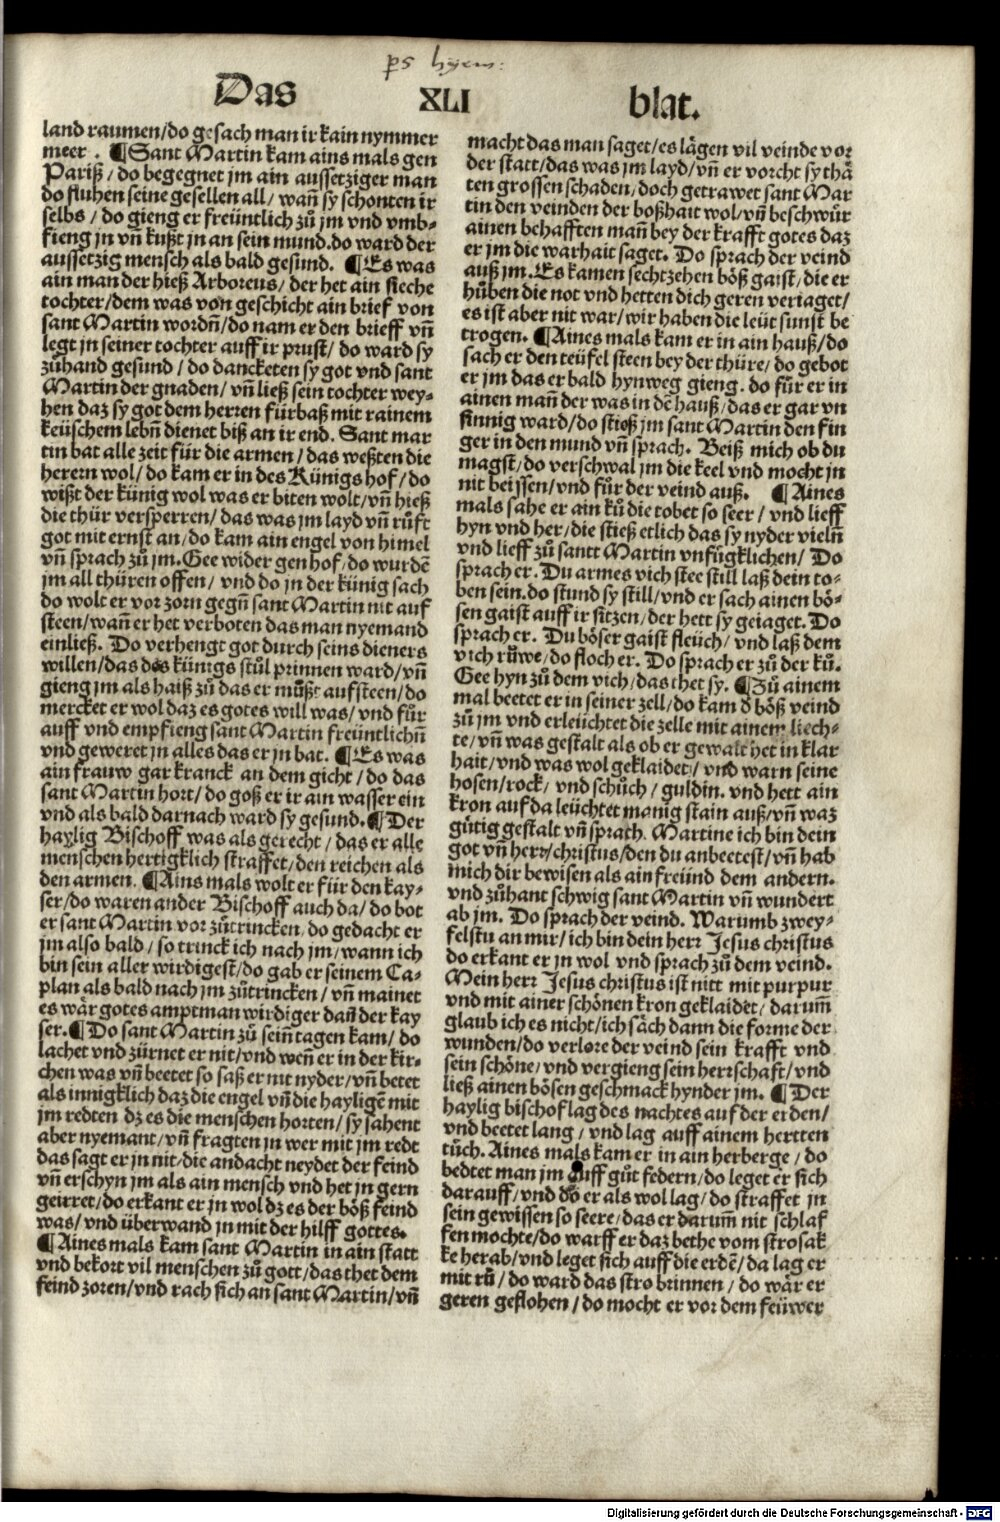 ps hyem:
Das XLI blat.
land raumen/do gesach man ir kain nymmer
meer . ¶Sant Martin kam ains mals gen
Pariß/ do begegnet jm ain aussetziger man
do fluhen seine gesellen all/ wañ sy schonten ir
selbs / do gieng er freüntlich zů jm vnd vmb⸗
fieng jn vñ kußt jn an sein mund.do ward der
aussetzig mensch als bald gesund. ¶Es was
ain man der hieß Arboreus/ der het ain sieche
tochter/dem was von geschicht ain brief von
sant Martin wordñ/do nam er den brieff vñ
legt jn seiner tochter auff ir prust/ do ward sy
zůhand gesund / do dancketen sy got vnd sant
Martin der gnaden/ vñ ließ sein tochter wey⸗
hen daz sy got dem herren fürbaß mit rainem
keüschem lebñ dienet biß an ir end. Sant mar
tin bat alle zeit für die armen / das weßten die
herern wol/ do kam er in des Künigs hof/ do
wißt der künig wol was er biten wolt/vñ hieß
die thür versperren/ das was jm layd vñ růft
got mit ernst an/ do kam ain engel von himel
vñ sprach zů jm.Gee wider gen hof/do wurdē
jm all thüren offen/ vnd do jn der künig sach
do wolt er vor zorn gegñ sant Martin nit auf
steen/wañ er het verboten das man nyemand
einließ. Do verhengt got durch seins dieners
willen/das des künigs stůl prinnen ward/vñ
gieng jm als haiß zů das er můßt aufsteen/do
mercket er wol daz es gotes will was/ vnd für
auff vnd empfieng sant Martin freüntlichñ
vnd geweret jn alles das er jn bat. ¶Es was
ain frauw gar kranck an dem gicht / do das
sant Martin hort/ do goß er ir ain wasser ein
vnd als bald darnach ward sy gesund.¶Der
haylig Bischoff was als gerecht / das er alle
menschen hertigklich straffet/den reichen als
den armen. ¶Ains mals wolt er für den kay⸗
ser/do waren ander Bischoff auch da/ do bot
er sant Martin vor zůtrincken/ do gedacht er
jm also bald / so trinck ich nach jm/wann ich
bin sein aller wirdigest/do gab er seinem Ca⸗
plan als bald nach jm zůtrincken/ vñ mainet
es wär gotes amptman wirdiger dañ der kay
ser.¶Do sant Martin zů seinñ tagen kam/ do
lachet vnd zürnet er nit/vnd weñ er in der kir⸗
chen was vñ beetet so saß er nit nyder/vñ betet
als innigklich daz die engel vñ die hayligē mit
jm redten dz es die menschen horten/ sy sahent
aber nyemant/vñ fragten jn wer mit jm redt
das sagt er jn nit/die andacht neydet der feind
vñ erschyn jm als ain mensch vnd het jn gern
geirret/do erkant er jn wol dz es der böß feind
was/ vnd überwand jn mit der hilff gottes.
¶Aines mals kam sant Martin in ain statt
vnd bekort vil menschen zů gott/das thet dem
feind zoren/vnd rach sich an sant Martin/vñ
macht das man saget/es lägen vil veinde vor
der statt/das was jm layd/vñ er vorcht sy thä
ten grossen schaden/doch getrawet sant Mar
tin den veinden der boßhait wol/vñ beschwůr
ainen behafften mañ bey der krafft gotes daz
er jm die warhait saget. Do sprach der veind
auß jm.Es kamen sechtzehen böß gaist/die er
hůben die not vnd hetten dich geren veriaget/
es ist aber nit war/wir haben die leüt sunst be
trogen. ¶Aines mals kam er in ain hauß/do
sach er den teüfel steen bey der thüre/do gebot
er jm das er bald hynweg gieng. do für er in
ainen mañ der was in dē hauß/das er gar vn
sinnig ward/do stieß jm sant Martin den fin
ger in den mund vñ sprach. Beiß mich ob du
magst/do verschwal jm die keel vnd mocht jn
nit beissen/vnd für der veind auß. ¶Aines
mals sahe er ain ků die tobet so seer / vnd lieff
hyn vnd her/die stieß etlich das sy nyder vielñ
vnd lieff zů santt Martin vnfügklichen/ Do
sprach er. Du armes vich stee still laß dein to⸗
ben sein.do stund sy still/vnd er sach ainen bö⸗
sen gaist auff ir sitzen/der hett sy geiaget. Do
sprach er. Du böser gaist fleüch/ vnd laß dem
vich růwe/do floch er. Do sprach er zů der ků.
Gee hyn zů dem vich/das thet sy. ¶Zů ainem
mal beetet er in seiner zell/do kam ð böß veind
zů jm vnd erleüchtet die zelle mit ainem liech⸗
te/vñ was gestalt als ob er gewalt het in klar
hait/vnd was wol geklaidet/ vnd warn seine
hosen/rock/ vnd schůch/ guldin. vnd hett ain
kron auf da leüchtet manig stain auß/vñ waz
gütig gestalt vñ sprach. Martine ich bin dein
got vñ herr/christus/den du anbeetest/vñ hab
mich dir bewisen als ain freünd dem andern.
vnd zůhant schwig sant Martin vñ wundert
ab jm. Do sprach der veind. Warumb zwey⸗
felstu an mir/ich bin dein herr Jesus christus
do erkant er jn wol vnd sprach zů dem veind.
Mein herr Jesus christus ist nitt mit purpur
vnd mit ainer schönen kron geklaidet/ darum̃
glaub ich es nicht/ich säch dann die forme der
wunden/do verlore der veind sein krafft vnd
sein schöne/vnd vergieng sein herrschaft/vnd
ließ ainen bösen geschmack hynder jm. ¶Der
haylig bischof lag des nachtes auf der erden/
vnd beetet lang / vnd lag auff ainem hertten
tůch. Aines mals kam er in ain herberge / do
bedtet man jm auff gůt federn/do leget er sich
darauff/vnd do er als wol lag/do straffet jn
sein gewissen so seere/das er darum̃ nit schlaf
fen mochte/do warff er daz bethe vom strosak
ke herab/vnd leget sich auff die erdē/da lag er
mit rů / do ward das stro brinnen / do wär er
geren geflohen/do mocht er vor dem feüwer
Digitalisierung gefördert durch die Deutsche Forschungsgemeinschaft - DFG